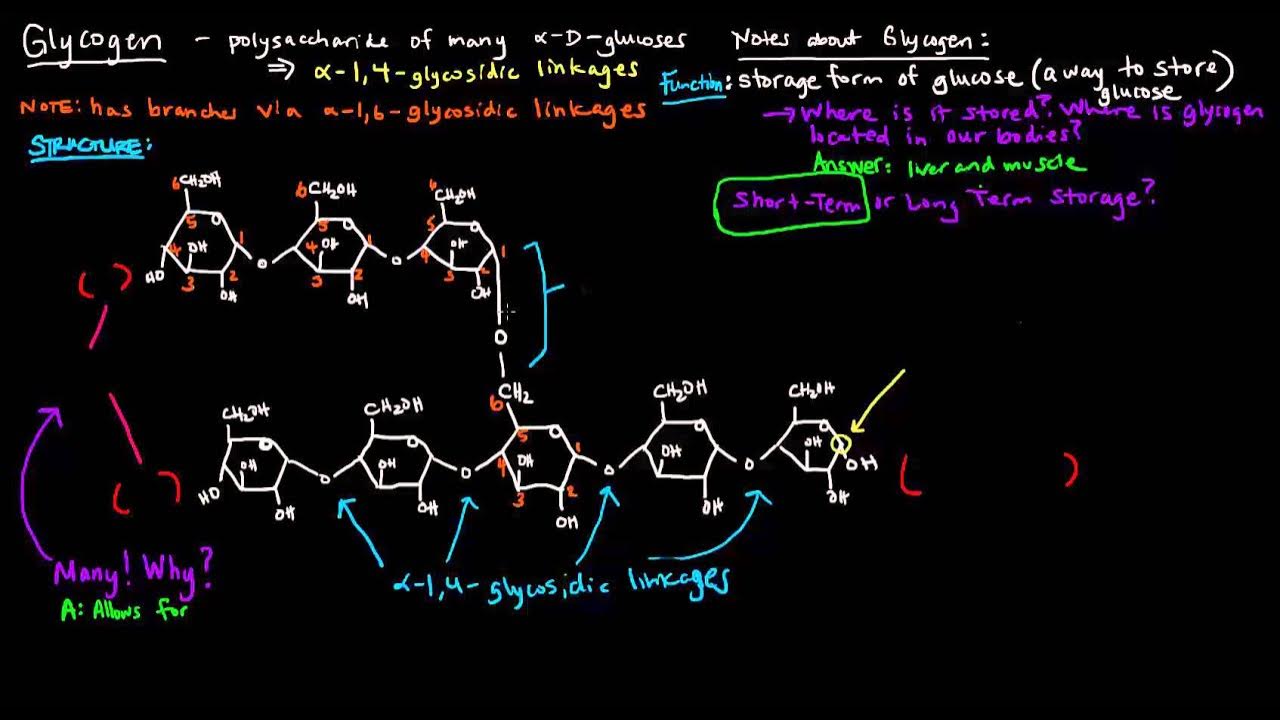 Glycogen - polysaccharide of many α-D-glucoses
⇒ α-1,4-glycosidic linkages
NOTE: has branches via α-1,6-glycosidic linkages
STRUCTURE:
Notes about Glycogen:
Function: storage form of glucose (a way to store glucose)
→ Where is it stored? Where is glycogen
located in our bodies?
Answer: liver and muscle
Short-Term or Long Term Storage?
6 CH₂OH 6 CH₂OH 6 CH₂OH
5 O 5 O 5 O
4 OH 1 4 OH 1 4 OH 1
HO 3 2 O 3 2 O 3 2
OH OH OH
( )
O
CH₂
6
CH₂OH CH₂OH CH₂OH CH₂OH
O O 5 O O O
OH OH 4 OH 1 OH OH OH
HO O O 3 2 O O
OH OH OH OH OH
( ) ( )
Many! Why?
A: Allows for
α-1,4-glycosidic linkages